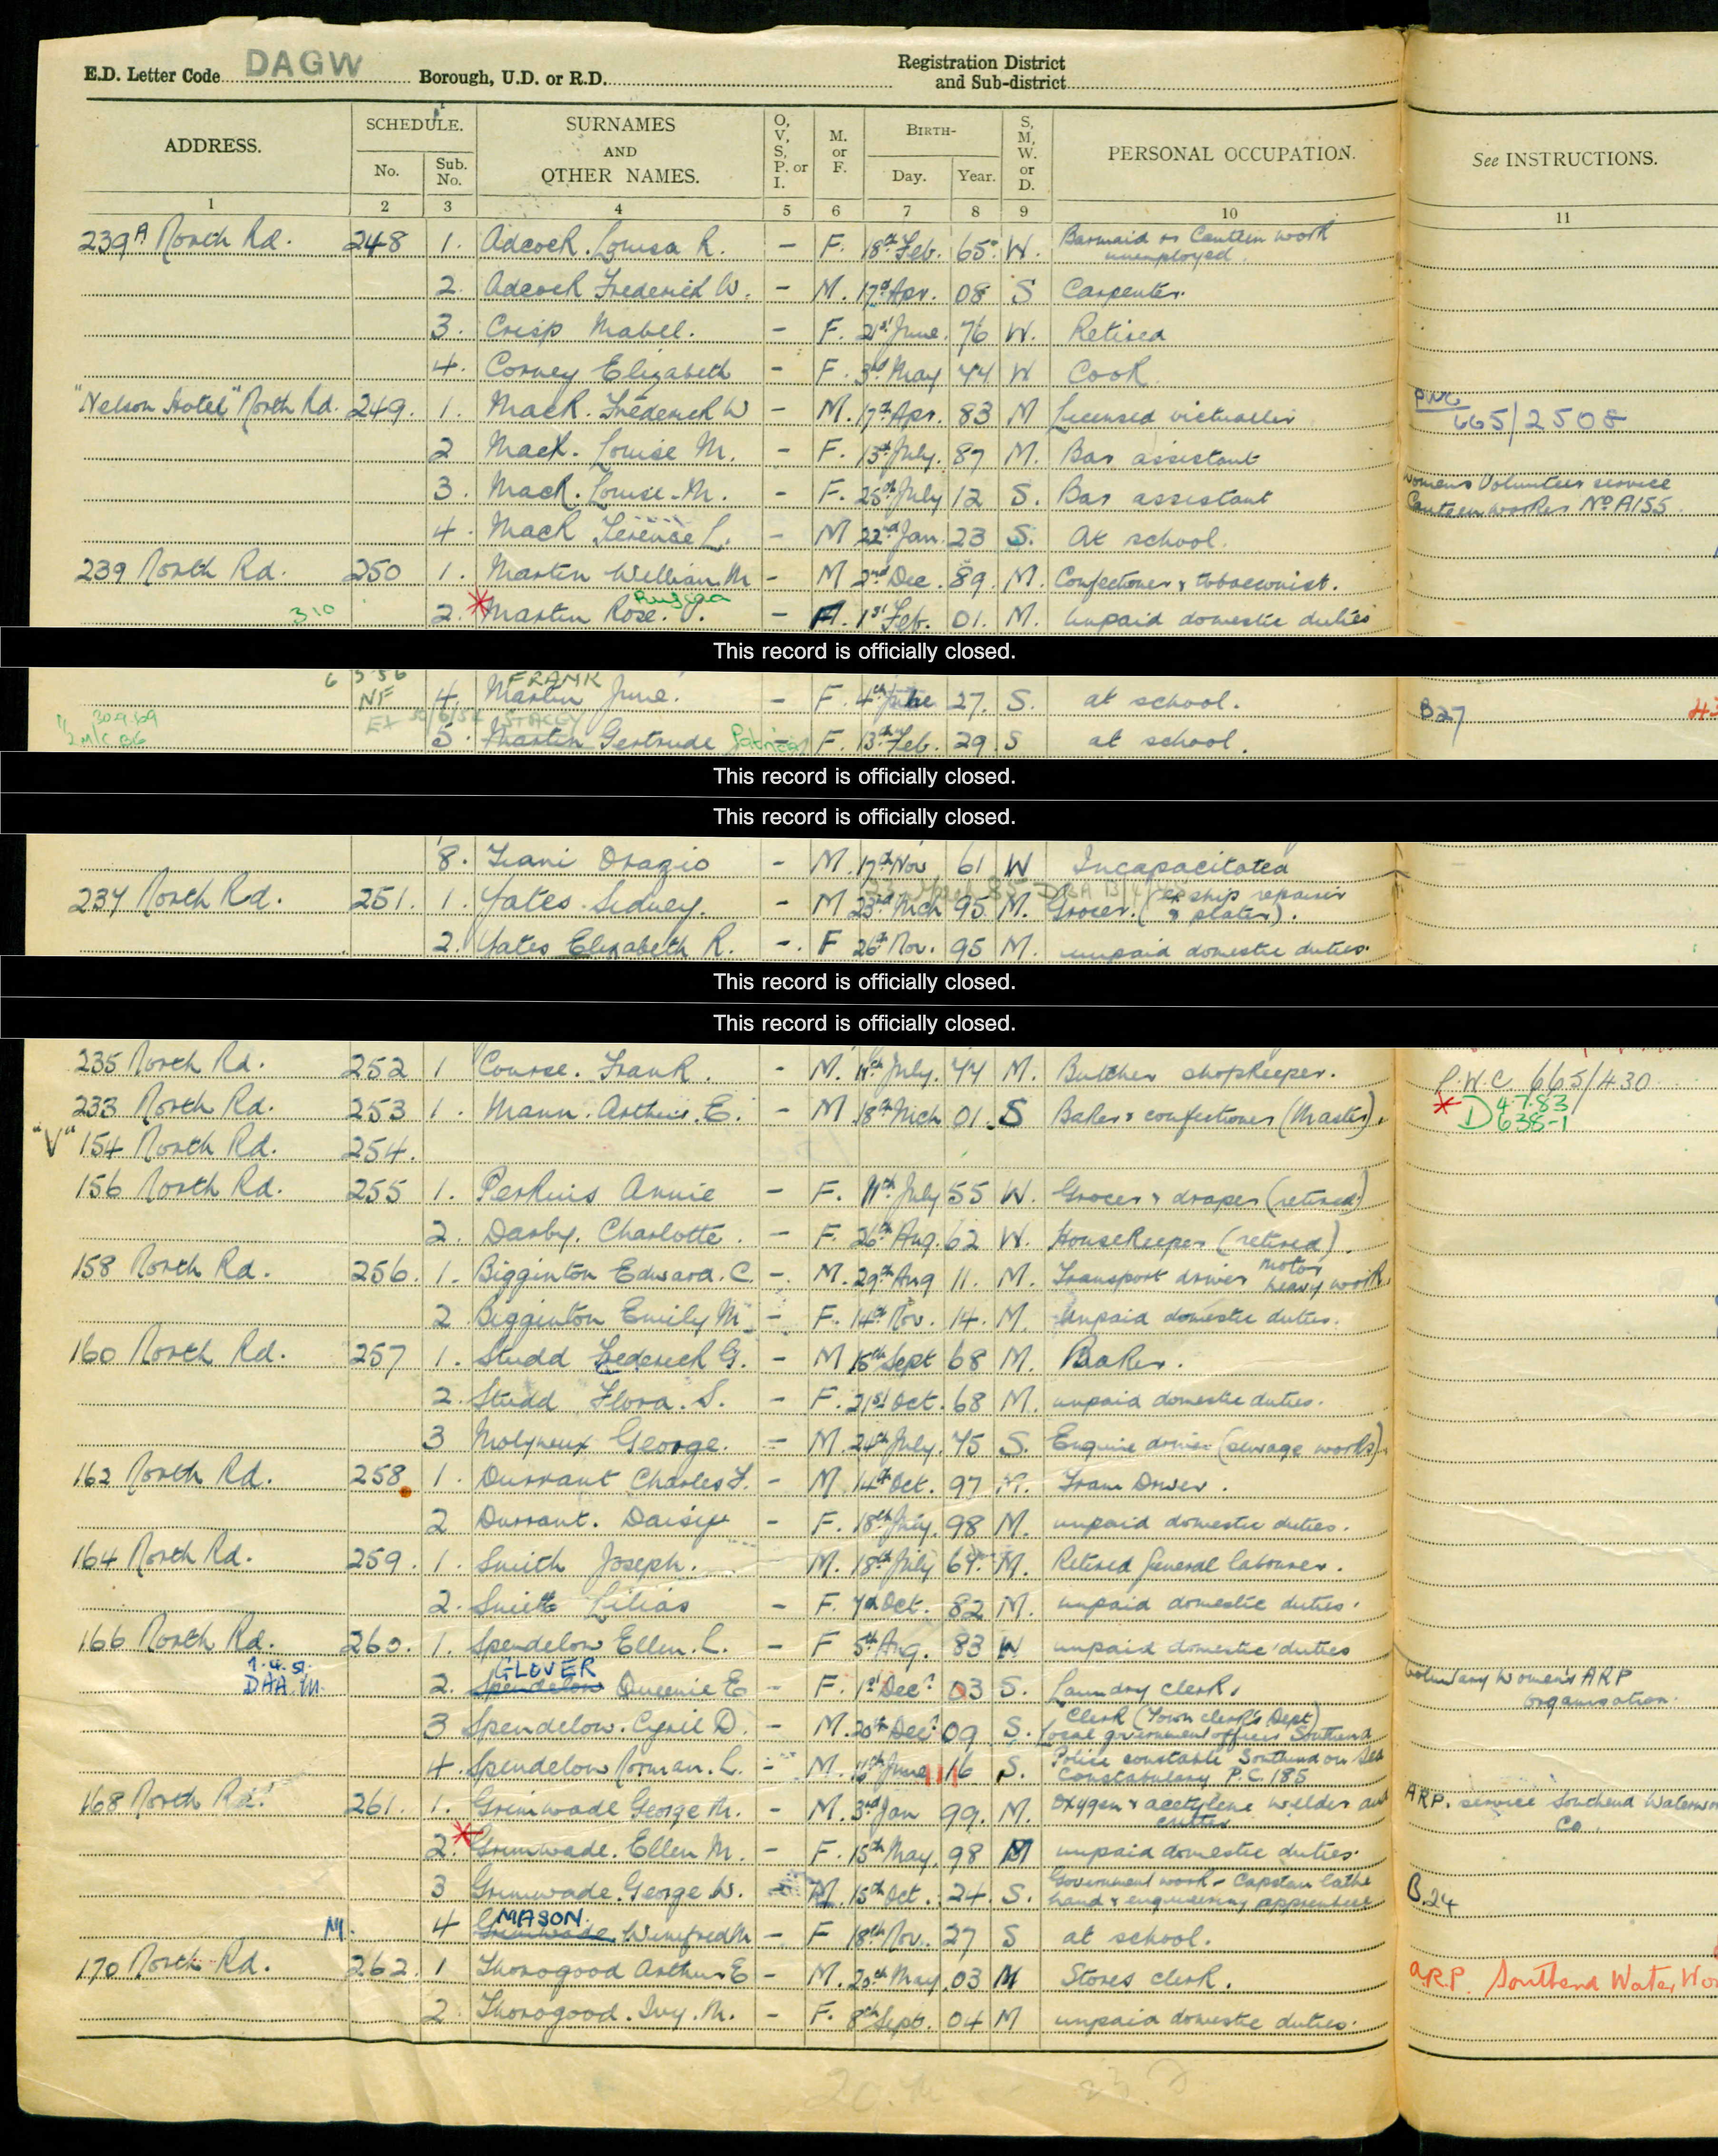 E.D. Letter Code DAGW Borough, U.D. or R.D. Registration District and Sub-district
ADDRESS. SCHEDULE. No. Sub. No. SURNAMES AND OTHER NAMES. O, V, S, P. or I. M. or F. BIRTH- Day. Year. S, M, W. or D. PERSONAL OCCUPATION. See INSTRUCTIONS.
1 2 3 4 5 6 7 8 9 10 11
239A North Rd. 248 1. Adcock. Louisa R. - F. 18th Feb. 65 W. Barmaid or Canteen work unemployed.
2. Adcock Frederick W. - M. 17th Apr. 08 S Carpenter.
3. Crisp Mabel. - F. 21st June. 76 W. Retired
4. Corney Elizabeth - F. 3rd May 74 W Cook.
"Nelson Hotel" North Rd. 249. 1. Mack. Frederick W - M. 17th Apr. 83 M Licensed victualler PWC 665/2508
2 Mack. Louise M. - F. 15th July. 87 M. Bar assistant
3. Mack. Louise. M. - F. 25th July 12 S. Bar assistant Womens Volunteer service Canteen worker No A155.
4. Mack Terence L. - M 22nd Jan. 23 S. At school.
239 North Rd. 250 1. Martin William. M - M 2nd Dec. 89. M. Confectioner & tobacconist.
310 2. Martin Rose. V. - F. 1st Feb. 01. M. Unpaid domestic duties
This record is officially closed.
NF 4. Martin June. FRANK - F. 4th June 27. S. at school. B27
STACEY
5. Martin Gertrude Patricia - F. 13th Feb. 29. S at school.
This record is officially closed.
This record is officially closed.
8. Orazio - M. 17th Nov 61 W Incapacitated
237 North Rd. 251. 1. Yates. Sidney. - M 23rd Mch 95 M. Grocer. (ex ship repairer & plater).
2. Yates Elizabeth R. -. F 26th Nov. 95 M. unpaid domestic duties.
This record is officially closed.
This record is officially closed.
235 North Rd. 252 1 Course. Frank. - M. July. 77 M. Butcher shopkeeper. P.W.C. 665/430
233 North Rd. 253 1. Mann. Arthur. E. - M 18th Mch 01. S Baker & confectioner (Master). D 4.7.83 638-1
"V" 154 North Rd. 254.
156 North Rd. 255 1. Perkins Annie - F. 11th July 55 W. Grocer & draper (retired)
2. Darby. Charlotte. - F. 26th Aug. 62 W. Housekeeper (retired).
158 North Rd. 256. 1. Bigginton Edward. C. -. M. 29th Aug 11. M. Transport driver motor heavy work.
2 Bigginton Emily M - F. 14th Nov. 14. M. Unpaid domestic duties.
160 North Rd. 257 1. Studd Frederick G. - M 16th Sept 68 M. Baker.
2. Studd Flora. S. - F. 21st Oct. 68 M. unpaid domestic duties.
3 Molyneux George. - M. 24th July. 75 S. Engine driver (sewage works).
162 North Rd. 258 1. Durrant Charles F. - M 14th Oct. 97 M. Tram Driver.
2 Durrant. Daisy - F. 18th July. 98 M. unpaid domestic duties.
164 North Rd. 259. 1. Smith Joseph. M. 18th July 69 M. Retired general labourer.
2. Smith Lilias - F. 7th Oct. 82 M. unpaid domestic duties.
166 North Rd. 260. 1. Spendelow Ellen. L. - F 5th Aug. 83 W unpaid domestic duties
DAA. M. GLOVER
2. Spendelow Queenie E - F. 1st Dec. 03 S. Laundry clerk. Voluntary Women's ARP organisation.
3 Spendelow. Cyril D. - M. 20th Dec. 09 S. Clerk (Town clerk's Dept) Local government officer Southend
4. Spendelow Norman. L. - M. June 16 S. Police constable Southend on Sea Constabulary P.C. 185
168 North Rd. 261. 1. Grimwade George M. - M. 3rd Jan 99. M. Oxygen & acetylene welder and cutter ARP. service Southend Waterwo Co.
2. Grimwade. Ellen M. - F. 15th May. 98 M unpaid domestic duties.
3 Grimwade. George W. M. 15th Oct. 24. S. Government work - Capstan lathe hand & engineering apprentice B.24
M. MASON.
4 Grimwade. Winifred M - F 18th Nov. 27 S at school.
170 North Rd. 262. 1 Thorogood Arthur E - M. 20th May. 03 M Stores clerk. A.R.P. Southend Water Wo
2. Thorogood. Ivy. M. - F. 8th Sept. 04 M unpaid domestic duties.